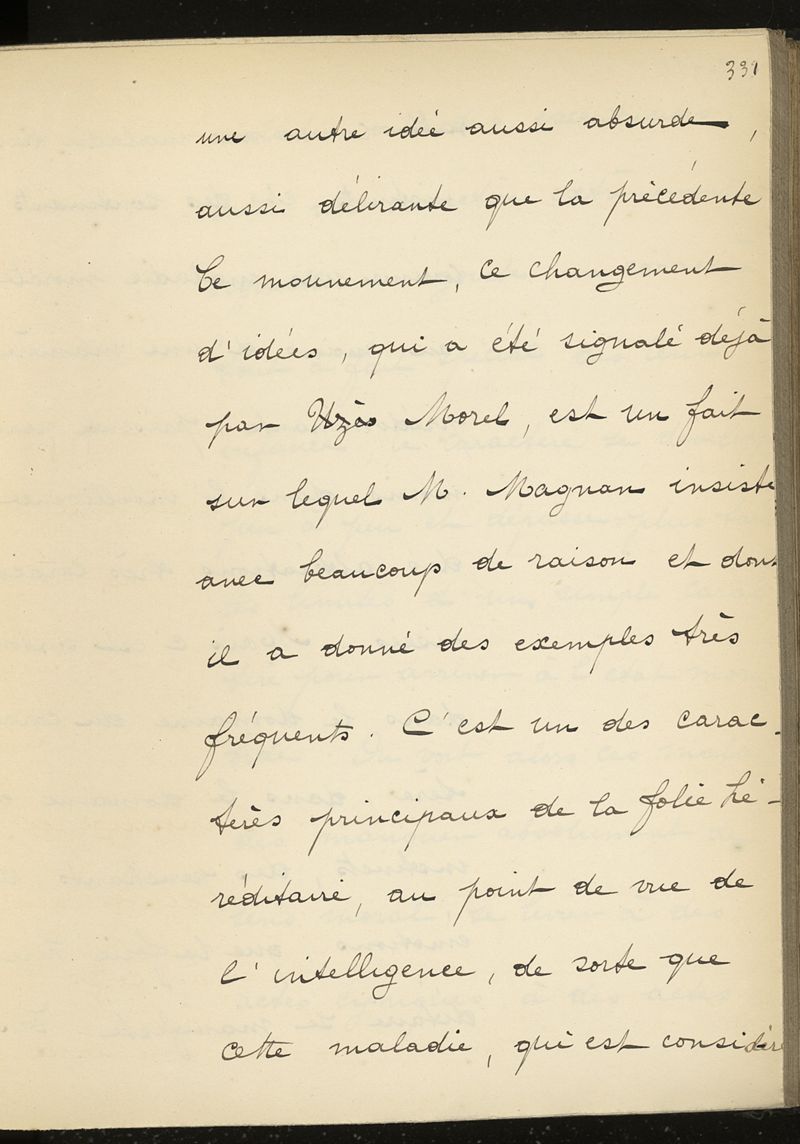 331
une autre idée aussi absurde,
aussi délirante que la précédente
Ce mouvement, ce changement
d'idées, qui a été signalé déjà
par Morel, est un fait
sur lequel M. Magnan insiste
avec beaucoup de raison et dont
il a donné des exemples très
fréquents. C'est un des carac-
terès principaux de la folie hé-
réditaire, au point de vue de
l'intelligence, de sorte que
cette maladie, qui est considére